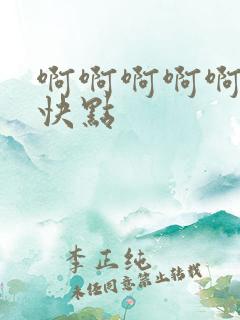 啊啊啊啊啊
快點
李正纯
未经同意禁止转载